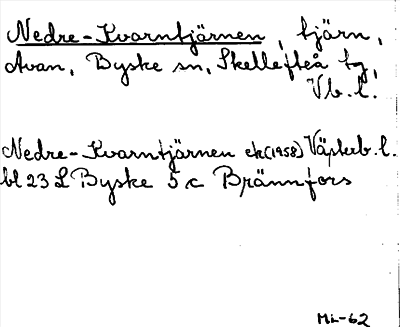 Nedre-Kvarntjärnen, tjärn,
Avan, Byske sn, Skellefteå tg,
Vb. l.
Nedre-Kvarntjärnen ek(1958) Västerb. l.
bl 23 L Byske 5 c Brännfors
ML-62